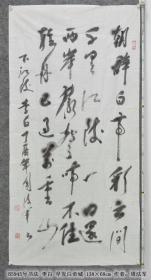 朝辞白帝彩云间
千里江陵一日还
两岸猿声啼不住
轻舟已过万重山
下江陵 李白 丁亥年
书法 李白 早发白帝城 138×68cm 作者: